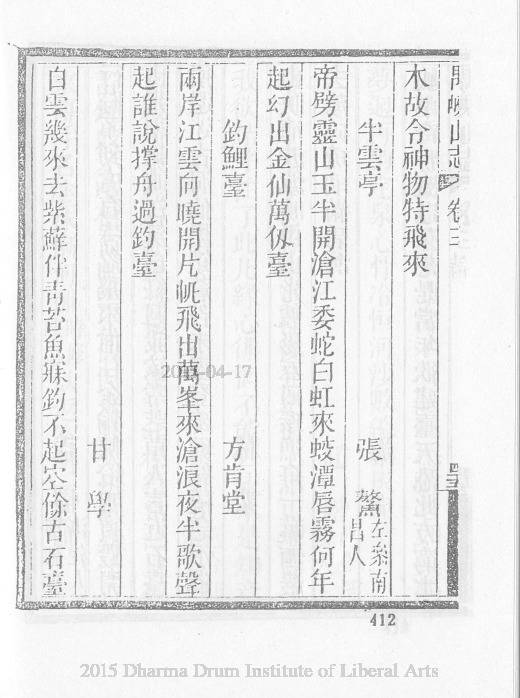 禺峽山志 卷三 四五
木故令神物特飛來
半雲亭 張 驁 左叅南昌人
帝劈靈山玉半開滄江委蛇白虹來蛟潭唇霧何年
起幻出金仙萬仞臺
釣鯉臺 方肯堂
兩岸江雲向曉開片帆飛出萬峯來滄浪夜半歌聲
起誰說撑舟過釣臺
甘 學
白雲幾來去紫蘚伴青苔魚寐釣不起空餘古石臺
412
2015-04-17
2015 Dharma Drum Institute of Liberal Arts